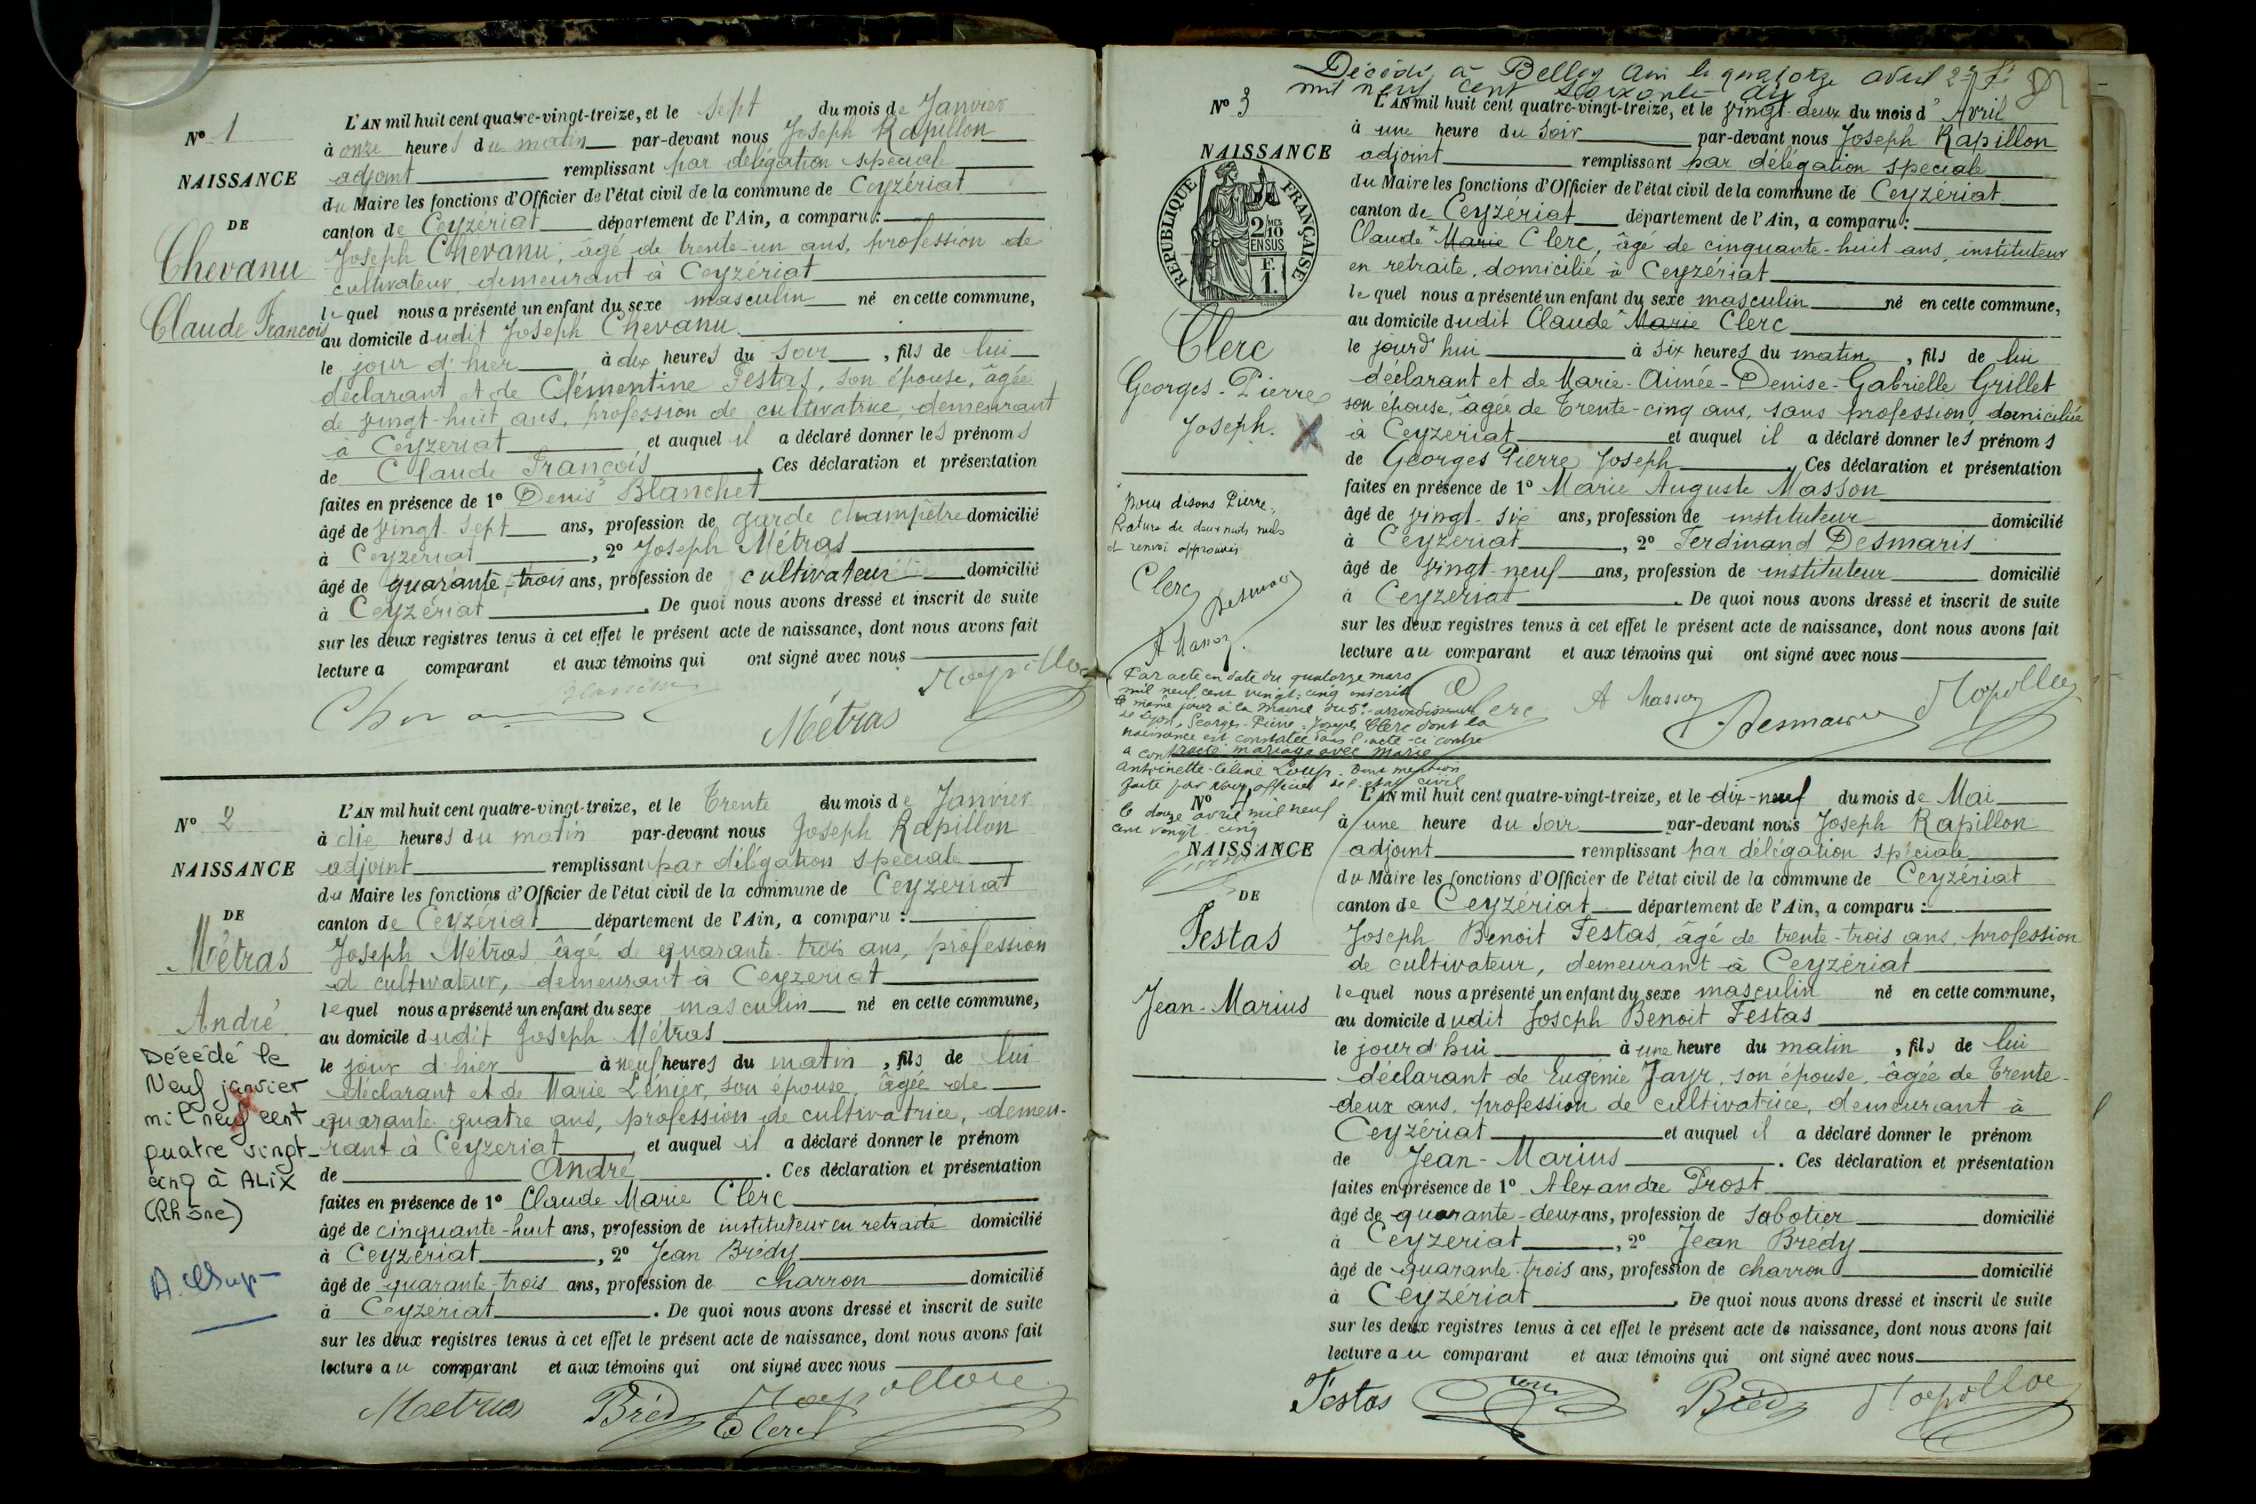 Nº 1
NAISSANCE
DE
Chevanu
Claude François
L'AN mil huit cent quatre-vingt-treize, et le sept du mois de Janvier
à onze heures du matin par-devant nous Joseph Rapillon
adjoint remplissant par délégation spéciale
du Maire les fonctions d'Officier de l'état civil de la commune de Ceyzériat
canton de Ceyzériat département de l'Ain, a comparu :
Joseph Chevanu, âgé de trente-un ans, profession de
cultivateur, demeurant à Ceyzériat
lequel nous a présenté un enfant du sexe masculin né en cette commune,
au domicile dudit Joseph Chevanu
le jour d'hier à dix heures du soir, fils de lui
déclarant et de Clémentine Festas, son épouse, âgée
de vingt-huit ans, profession de cultivatrice, demeurant
à Ceyzeriat et auquel il a déclaré donner les prénoms
de Claude François. Ces déclaration et présentation
faites en présence de 1º Denis Blanchet
âgé de vingt-sept ans, profession de garde champêtre domicilié
à Ceyzeriat, 2º Joseph Métras
âgé de quarante-trois ans, profession de cultivateur domicilié
à Ceyzériat. De quoi nous avons dressé et inscrit de suite
sur les deux registres tenus à cet effet le présent acte de naissance, dont nous avons fait
lecture a comparant et aux témoins qui ont signé avec nous
Métras
Nº 2
NAISSANCE
DE
Métras
André
Décédé le
Neuf janvier
mil neuf cent
quatre vingt-
cinq à ALIX
(Rhône)
L'AN mil huit cent quatre-vingt-treize, et le Trente du mois de Janvier
à dix heures du matin par-devant nous Joseph Rapillon
adjoint remplissant par délégation spéciale
du Maire les fonctions d'Officier de l'état civil de la commune de Ceyzeriat
canton de Ceyzériat département de l'Ain, a comparu :
Joseph Métras âgé de quarante-trois ans, profession
d cultivateur, demeurant à Ceyzeriat
lequel nous a présenté un enfant du sexe masculin né en cette commune,
au domicile dudit Joseph Métras
le jour d'hier à neuf heures du matin, fils de lui
déclarant et de Marie Lénier, son épouse, âgée de
quarante quatre ans, profession de cultivatrice, demeu-
rant à Ceyzeriat et auquel il a déclaré donner le prénom
de André. Ces déclaration et présentation
faites en présence de 1º Claude Marie Clerc
âgé de cinquante-huit ans, profession de instituteur en retraite domicilié
à Ceyzériat, 2º Jean Brédy
âgé de quarante-trois ans, profession de charron domicilié
à Ceyzériat. De quoi nous avons dressé et inscrit de suite
sur les deux registres tenus à cet effet le présent acte de naissance, dont nous avons fait
lecture au comparant et aux témoins qui ont signé avec nous
Metras Brédy
Clerc
Décédé à Belley Ain le quatorze avril
mil neuf cent soixante dix
Nº 3
NAISSANCE
RÉPUBLIQUE FRANÇAISE
2/10 MES
EN SUS
F.
1.
Clerc
Georges-Pierre
Joseph.
Nous disons Pierre.
Rature de deux mots nuls
et renvoi approuvés
Clerc
Desmaris
A Masson
Par acte en date du quatorze mars
mil neuf cent vingt-cinq inscrit
le même jour à la Mairie du 5e arrondissement
de Lyon, Georges-Pierre-Joseph Clerc dont la
naissance est constatée dans l'acte ci contre
a contracté mariage avec Marie
Antoinette-Céline Loup. Dont mention
faite par nous officier de l'état civil
le douze avril mil neuf
cent vingt-cinq
L'AN mil huit cent quatre-vingt-treize, et le vingt-deux du mois d'Avril
à une heure du soir par-devant nous Joseph Rapillon
adjoint remplissant par délégation spéciale
du Maire les fonctions d'Officier de l'état civil de la commune de Ceyzériat
canton de Ceyzériat département de l'Ain, a comparu :
Claude Marie Clerc, âgé de cinquante-huit ans, instituteur
en retraite, domicilié à Ceyzériat
lequel nous a présenté un enfant du sexe masculin né en cette commune,
au domicile dudit Claude Marie Clerc
le jourd'hui à six heures du matin, fils de lui
déclarant et de Marie-Aimée-Denise-Gabrielle Grillet
son épouse, âgée de Trente-cinq ans, sans profession, domiciliée
à Ceyzeriat et auquel il a déclaré donner les prénoms
de Georges Pierre Joseph. Ces déclaration et présentation
faites en présence de 1º Marie Auguste Masson
âgé de vingt-six ans, profession de instituteur domicilié
à Ceyzeriat, 2º Ferdinand Desmaris
âgé de vingt-neuf ans, profession de instituteur domicilié
à Ceyzeriat. De quoi nous avons dressé et inscrit de suite
sur les deux registres tenus à cet effet le présent acte de naissance, dont nous avons fait
lecture au comparant et aux témoins qui ont signé avec nous
Clerc A Masson Desmaris
Nº 4
NAISSANCE
DE
Festas
Jean-Marius
L'AN mil huit cent quatre-vingt-treize, et le dix-neuf du mois de Mai
à une heure du soir par-devant nous Joseph Rapillon
adjoint remplissant par délégation spéciale
du Maire les fonctions d'Officier de l'état civil de la commune de Ceyzériat
canton de Ceyzériat département de l'Ain, a comparu :
Joseph Benoit Festas, âgé de trente-trois ans, profession
de cultivateur, demeurant à Ceyzériat
lequel nous a présenté un enfant du sexe masculin né en cette commune,
au domicile dudit Joseph Benoit Festas
le jourd'hui à une heure du matin, fils de lui
déclarant de Eugénie Jayr, son épouse, âgée de Trente-
deux ans, profession de cultivatrice, demeurant à
Ceyzériat et auquel il a déclaré donner le prénom
de Jean-Marius. Ces déclaration et présentation
faites en présence de 1º Alexandre Prost
âgé de quarante-deux ans, profession de sabotier domicilié
à Ceyzeriat, 2º Jean Brédy
âgé de quarante-trois ans, profession de charron domicilié
à Ceyzériat. De quoi nous avons dressé et inscrit de suite
sur les deux registres tenus à cet effet le présent acte de naissance, dont nous avons fait
lecture au comparant et aux témoins qui ont signé avec nous
Festas Brédy